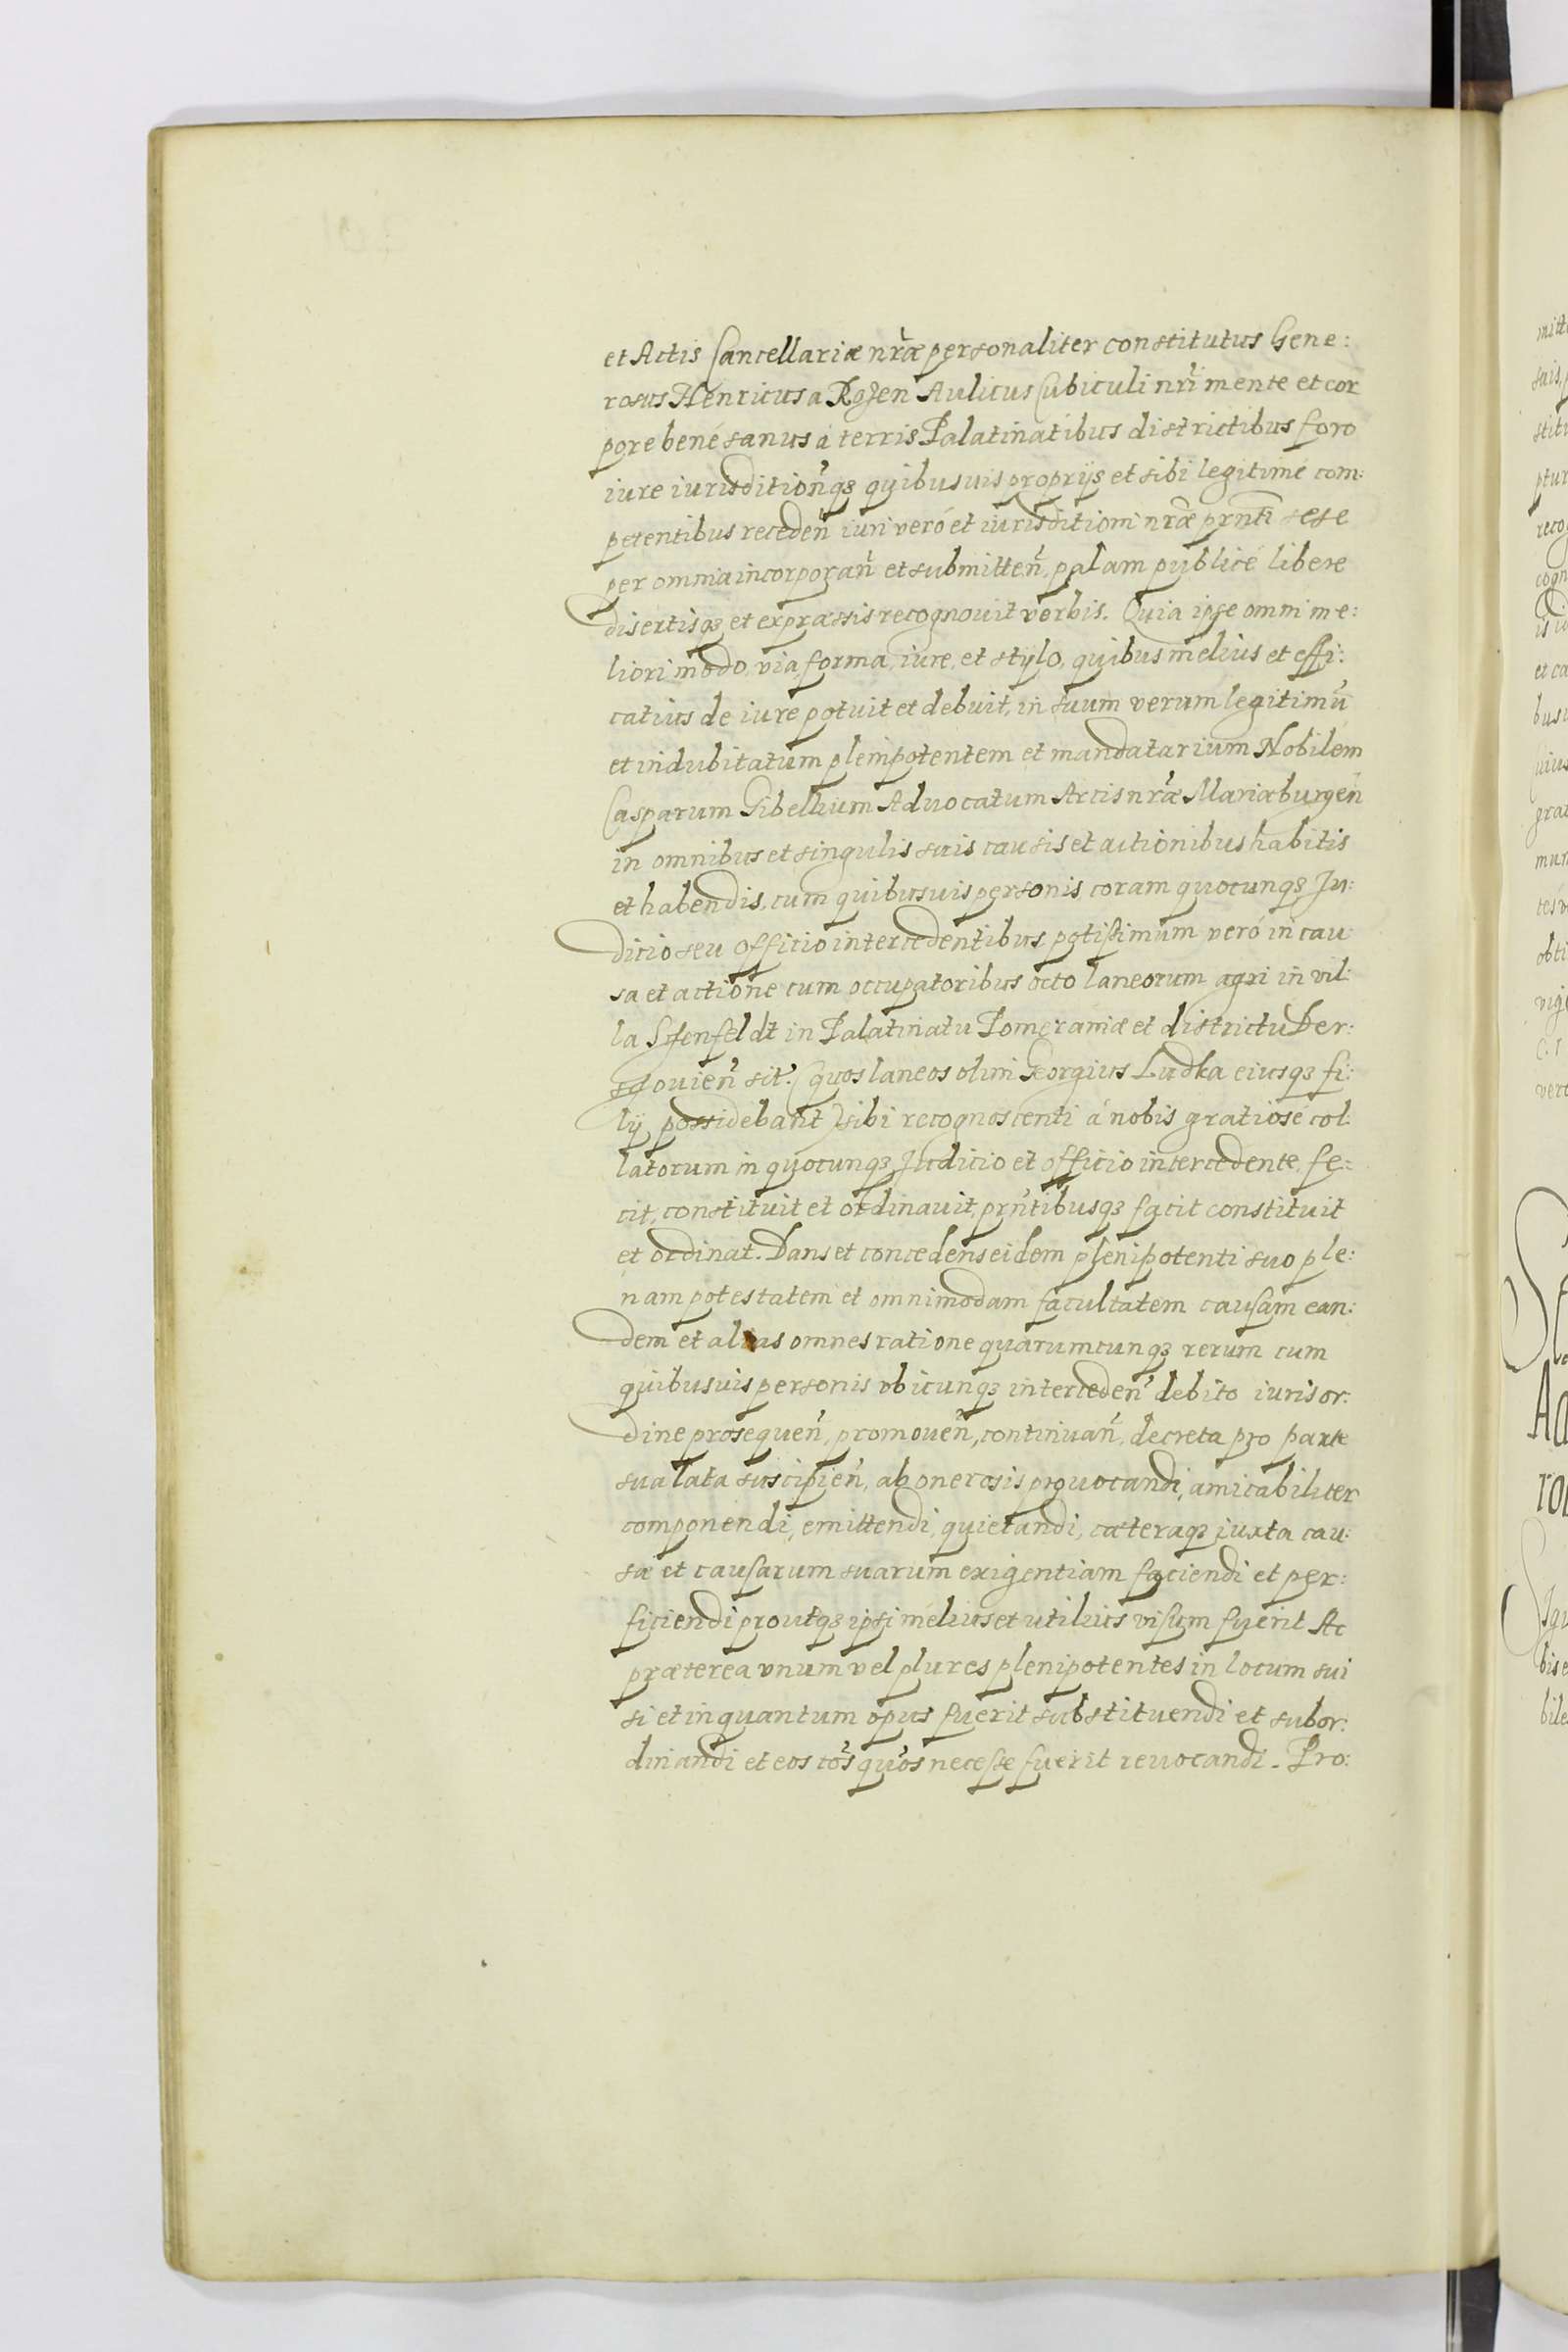 et Actis Cancellariæ nr̃æ personaliter constitutus Gene:
rosus Henricus a Rosen Aulicus Cubiculi nr̃i mente et cor
pore bené sanus á terris Palatinatibus districtibus foro
iure iurisditioñqȝ quibusuis proprijs et sibi legitimé com:
petentibus recedeñ iuri veró et iurisditioni nr̃æ prñti sese
per omnia incorporañ et submitteñ, palam publicé libere
disertisqȝ et expræssis recognouit verbis. Quia ipse omni me:
liori modo, via, forma, iure, et stylo, quibus melius et effi:
catius de iure potuit et debuit, in suum verum legitimũ
et indubitatum plenipotentem et mandatarium Nobilem
Casparum Gibellium Aduocatum Arcis nr̃æ Mariæburgeñ
in omnibus et singulis suis causis et actionibus habitis
et habendis, cum quibusuis personis, coram quocunqȝ Ju:
dicio seu officio intercedentibus potissimum veró in cau
sa et actione cum occupatoribus octo laneorum agri in vil:
la in Palatinatu Pomeraniæ et districtu Der:
souieñ sit. (quos laneos olim Georgius Ludka eiusqȝ fi:
lij possidebant) sibi recognoscenti á nobis gratiosé col
latorum in quocunqȝ Judicio et officio intercedente, fe:
cit, constituit et ordinauit, prñtibusqȝ facit constituit
et ordinat. Dans et concedens eidem plenipotenti suo ple:
nam potestatem et omnimodam facultatem causam ean:
dem et alias omnes ratione quarumcunqȝ rerum cum
quibusuis personis vbicunqȝ intercedeñ debito iuris or:
dine prosequeñ, promoueñ, continuañ, decreta pro parte
sua lata suscipieñ, ab onerosis prouocandi, amicabiliter
componendi, emittendi, quietandi, cæteraqȝ iuxta cau:
sæ et causarum suarum exigentiam faciendi et per:
ficiendi proutqȝ ipsi melius et utilius visum fuerit Ac
præterea vnum vel plures plenipotentes in locum sui
si et in quantum opus fuerit substituendi et subor:
dinandi et eos tõs quos necesse fuerit reuocandi. Pro: